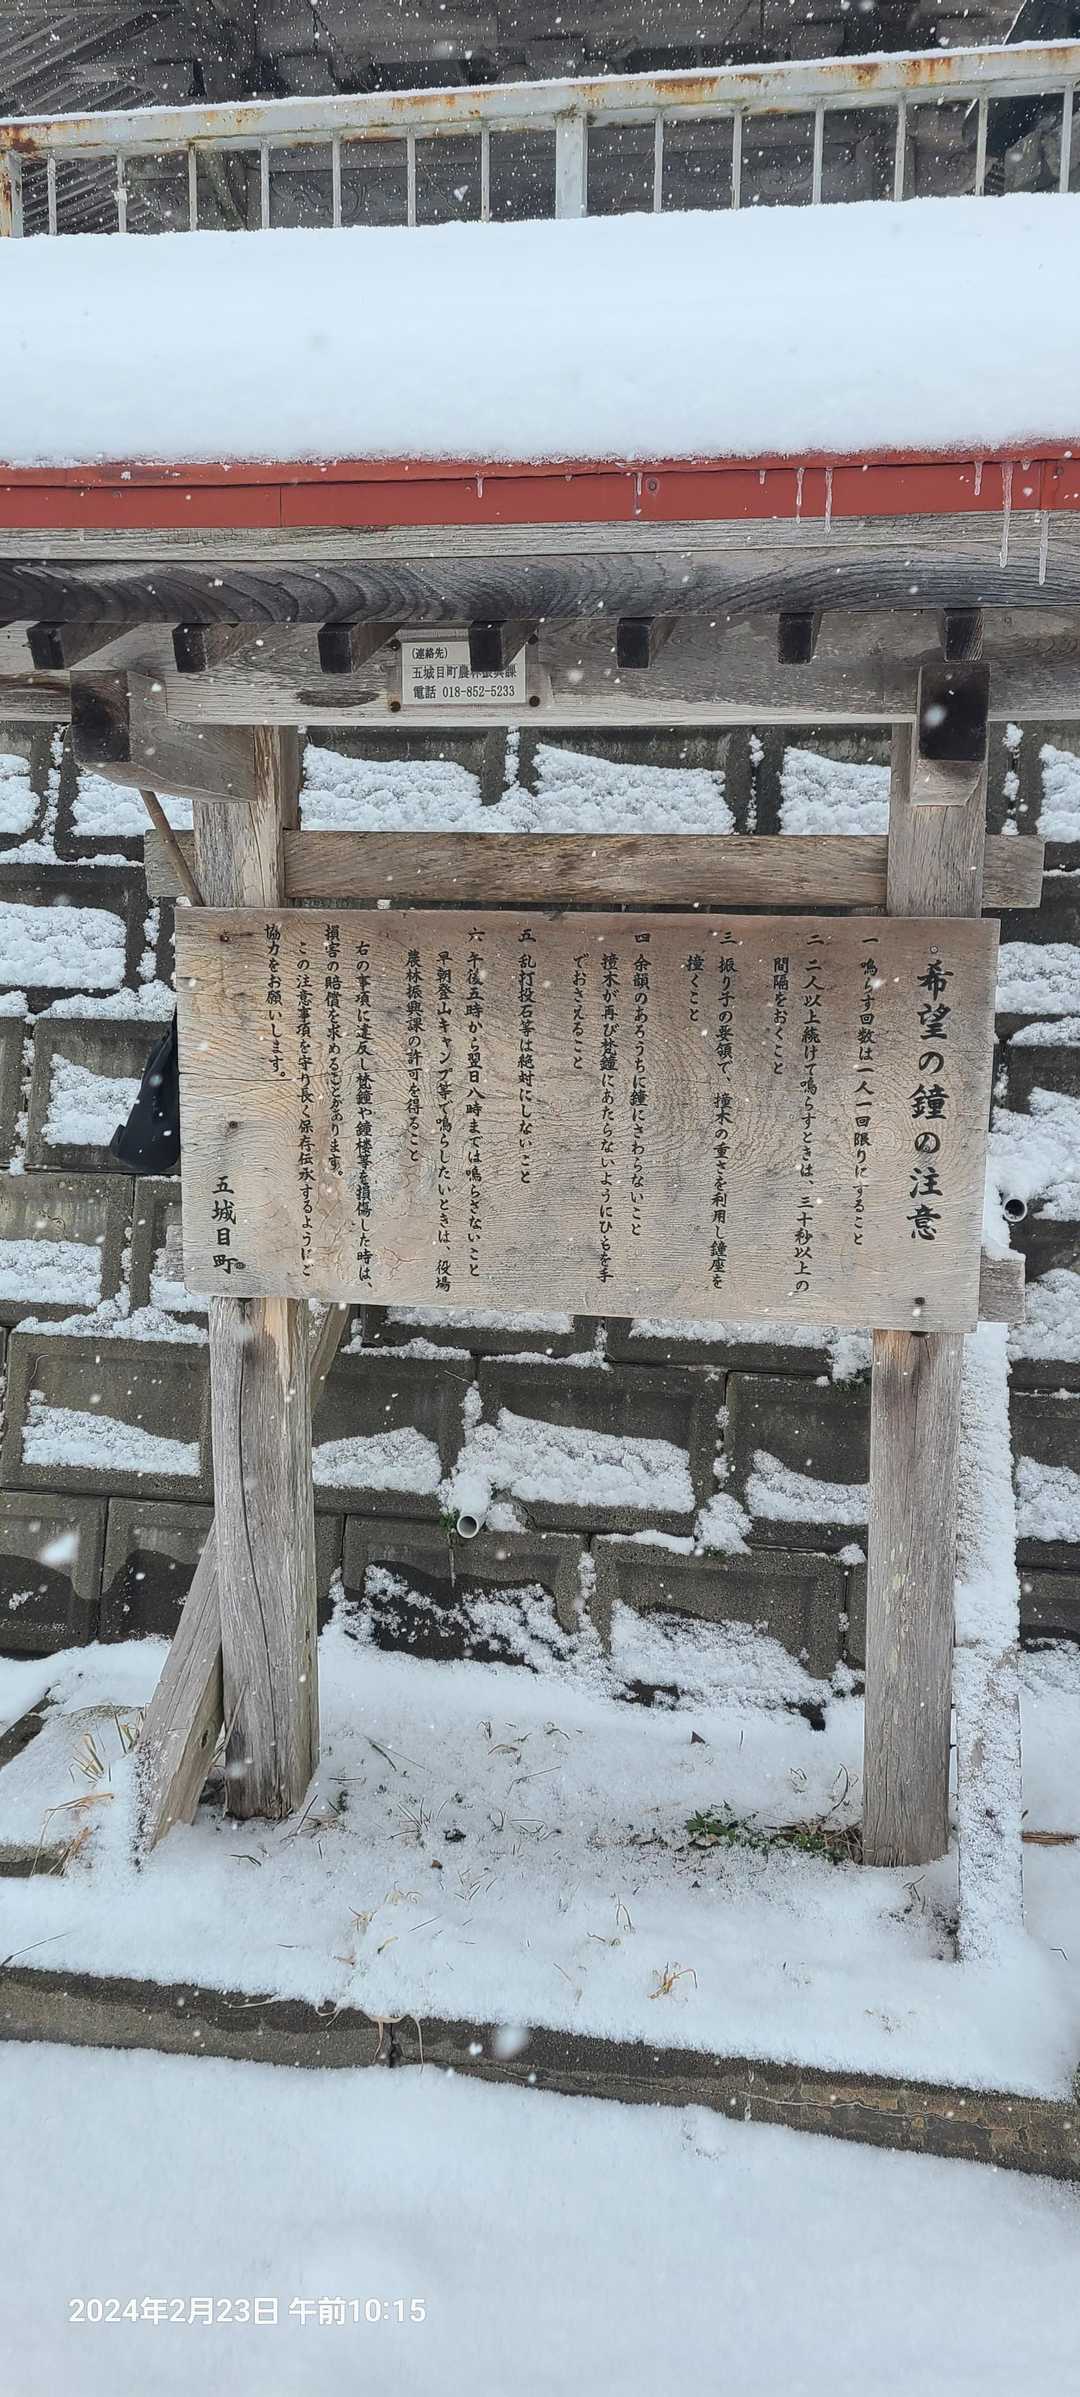 (連絡先)
五城目町農林振興課
電話 018-852-5233
希望の鐘の注意
一 鳴らす回数は一人一回限りにすること
二 二人以上続けて鳴らすときは、三十秒以上の
間隔をおくこと
三 振り子の要領で、撞木の重さを利用し鐘座を
撞くこと
四 余韻のあるうちに鐘にさわらないこと
撞木が再び梵鐘にあたらないようにひもを手
でおさえること
五 乱打投石等は絶対にしないこと
六 午後五時から翌日八時までは鳴らさないこと
早朝登山キャンプ等で鳴らしたいときは、役場
農林振興課の許可を得ること
右の事項に違反し梵鐘や鐘楼等を損傷した時は、
損害の賠償を求めることがあります。
この注意事項を守り長く保存伝承するようにご
協力をお願いします。
五城目町
2024年2月23日 午前10:15